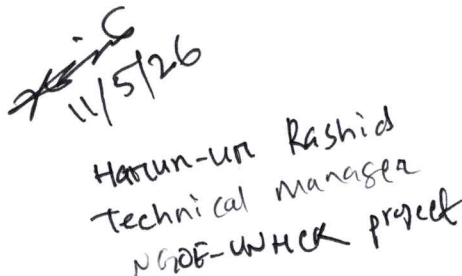 11/5/26
Harun-ur Rashid
Technical Manager
NGOF-UNHCR project